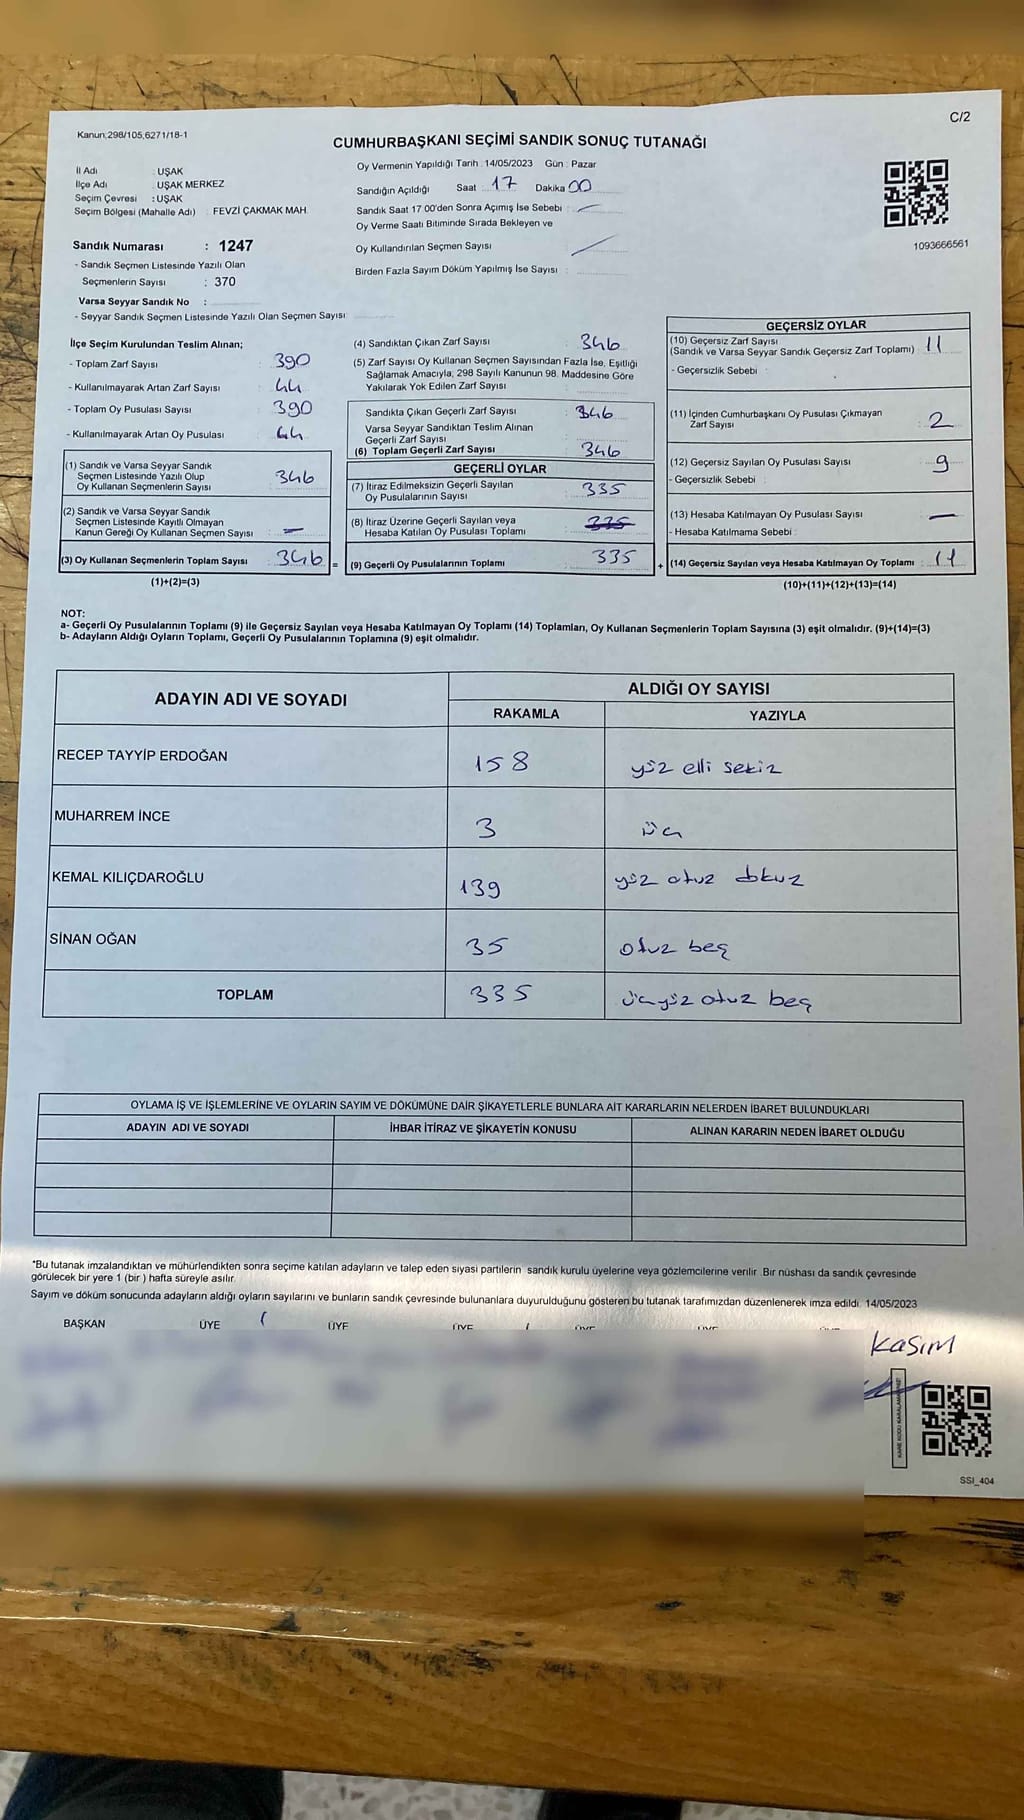 C/2
Kanun;298/105,6271/18-1
CUMHURBAŞKANI SEÇİMİ SANDIK SONUÇ TUTANAĞI
İl Adı : UŞAK
İlçe Adı : UŞAK MERKEZ
Seçim Çevresi : UŞAK
Seçim Bölgesi (Mahalle Adı) : FEVZİ ÇAKMAK MAH.
Sandık Numarası : 1247
- Sandık Seçmen Listesinde Yazılı Olan
Seçmenlerin Sayısı : 370
Varsa Seyyar Sandık No :
- Seyyar Sandık Seçmen Listesinde Yazılı Olan Seçmen Sayısı:
Oy Vermenin Yapıldığı Tarih : 14/05/2023 Gün : Pazar
Sandığın Açıldığı Saat : 17 Dakika 00
Sandık Saat 17 00'den Sonra Açımış İse Sebebi : -
Oy Verme Saati Bitiminde Sırada Bekleyen ve
Oy Kullandırılan Seçmen Sayısı :
Birden Fazla Sayım Döküm Yapılmış İse Sayısı :
1093666561
İlçe Seçim Kurulundan Teslim Alınan;
- Toplam Zarf Sayısı : 390
- Kullanılmayarak Artan Zarf Sayısı : 44
- Toplam Oy Pusulası Sayısı : 390
- Kullanılmayarak Artan Oy Pusulası : 44
(1) Sandık ve Varsa Seyyar Sandık
Seçmen Listesinde Yazılı Olup
Oy Kullanan Seçmenlerin Sayısı : 346
(2) Sandık ve Varsa Seyyar Sandık
Seçmen Listesinde Kayıtlı Olmayan
Kanun Gereği Oy Kullanan Seçmen Sayısı : -
(3) Oy Kullanan Seçmenlerin Toplam Sayısı : 346 =
(1)+(2)=(3)
(4) Sandıktan Çıkan Zarf Sayısı : 346
(5) Zarf Sayısı Oy Kullanan Seçmen Sayısından Fazla İse, Eşitliği
Sağlamak Amacıyla, 298 Sayılı Kanunun 98. Maddesine Göre
Yakılarak Yok Edilen Zarf Sayısı :
Sandıkta Çıkan Geçerli Zarf Sayısı : 346
Varsa Seyyar Sandıktan Teslim Alınan
Geçerli Zarf Sayısı :
(6) Toplam Geçerli Zarf Sayısı : 346
GEÇERLİ OYLAR
(7) İtiraz Edilmeksizin Geçerli Sayılan
Oy Pusulalarının Sayısı : 335
(8) İtiraz Üzerine Geçerli Sayılan veya
Hesaba Katılan Oy Pusulası Toplamı : 335
(9) Geçerli Oy Pusulalarının Toplamı : 335 +
GEÇERSİZ OYLAR
(10) Geçersiz Zarf Sayısı
(Sandık ve Varsa Seyyar Sandık Geçersiz Zarf Toplamı) : 11
- Geçersizlik Sebebi :
(11) İçinden Cumhurbaşkanı Oy Pusulası Çıkmayan
Zarf Sayısı : 2
(12) Geçersiz Sayılan Oy Pusulası Sayısı : 9
- Geçersizlik Sebebi :
(13) Hesaba Katılmayan Oy Pusulası Sayısı : -
- Hesaba Katılmama Sebebi :
(14) Geçersiz Sayılan veya Hesaba Katılmayan Oy Toplamı : 11
(10)+(11)+(12)+(13)=(14)
NOT:
a- Geçerli Oy Pusulalarının Toplamı (9) ile Geçersiz Sayılan veya Hesaba Katılmayan Oy Toplamı (14) Toplamları, Oy Kullanan Seçmenlerin Toplam Sayısına (3) eşit olmalıdır. (9)+(14)=(3)
b- Adayların Aldığı Oyların Toplamı, Geçerli Oy Pusulalarının Toplamına (9) eşit olmalıdır.
ADAYIN ADI VE SOYADI ALDIĞI OY SAYISI
RAKAMLA YAZIYLA
RECEP TAYYİP ERDOĞAN 158 yüz elli sekiz
MUHARREM İNCE 3 üç
KEMAL KILIÇDAROĞLU 139 yüz otuz dokuz
SİNAN OĞAN 35 otuz beş
TOPLAM 335 üçyüz otuz beş
OYLAMA İŞ VE İŞLEMLERİNE VE OYLARIN SAYIM VE DÖKÜMÜNE DAİR ŞİKAYETLERLE BUNLARA AİT KARARLARIN NELERDEN İBARET BULUNDUKLARI
ADAYIN ADI VE SOYADI İHBAR İTİRAZ VE ŞİKAYETİN KONUSU ALINAN KARARIN NEDEN İBARET OLDUĞU
*Bu tutanak imzalandıktan ve mühürlendikten sonra seçime katılan adayların ve talep eden siyasi partilerin sandık kurulu üyelerine veya gözlemcilerine verilir. Bir nüshası da sandık çevresinde
görülecek bir yere 1 (bir ) hafta süreyle asılır.
Sayım ve döküm sonucunda adayların aldığı oyların sayılarını ve bunların sandık çevresinde bulunanlara duyurulduğunu gösteren bu tutanak tarafımızdan düzenlenerek imza edildi. 14/05/2023
BAŞKAN ÜYE ÜYE ÜYE ÜYE ÜYE
Kasım
SSI_404